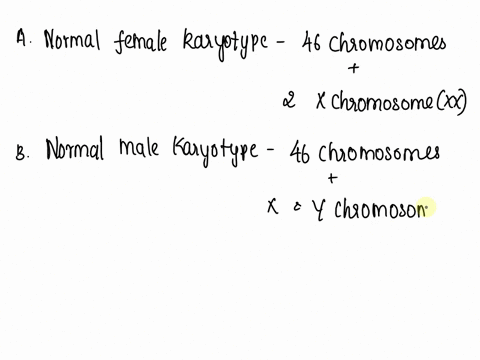 A. Normal female karyotype - 46 chromosomes
+
2 X chromosome (XX)
B. Normal male Karyotype - 46 chromosomes
+
X & Y chromosom